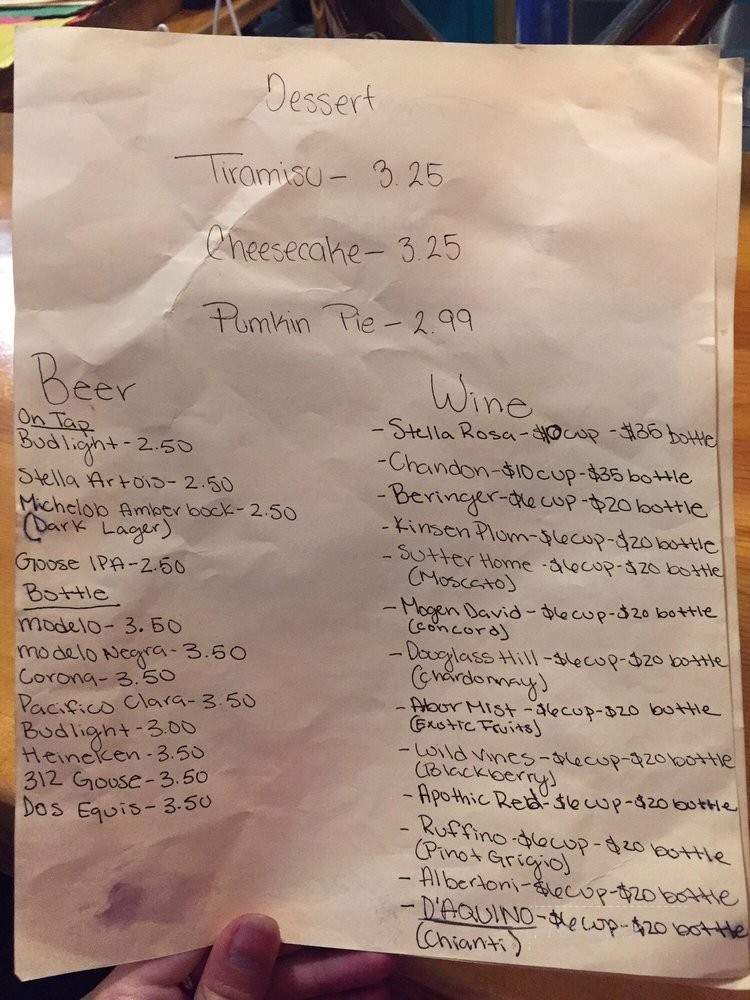 Dessert
Tiramisu - 3.25
Cheesecake - 3.25
Pumkin Pie - 2.99
Beer
On Tap
Budlight - 2.50
Stella Artois - 2.50
Michelob Amber bock - 2.50
(Dark Lager)
Goose IPA - 2.50
Bottle
modelo - 3.50
modelo Negra - 3.50
Corona - 3.50
Pacifico Clara - 3.50
Budlight - 3.00
Heineken - 3.50
312 Goose - 3.50
Dos Equis - 3.50
Wine
- Stella Rosa - $10 cup - $35 bottle
- Chandon - $10 cup - $35 bottle
- Beringer - $6 cup - $20 bottle
- Kinsen Plum - $6 cup - $20 bottle
- Sutter Home - $6 cup - $20 bottle
(Moscato)
- Mogen David - $6 cup - $20 bottle
(Concord)
- Douglass Hill - $6 cup - $20 bottle
(Chardonnay)
- Abor Mist - $6 cup - $20 bottle
(Exotic Fruits)
- Wild Vines - $6 cup - $20 bottle
(Blackberry)
- Apothic Red - $6 cup - $20 bottle
- Ruffino - $6 cup - $20 bottle
(Pinot Grigio)
- Albertoni - $6 cup - $20 bottle
- D'AQUINO - $6 cup - $20 bottle
(Chianti)